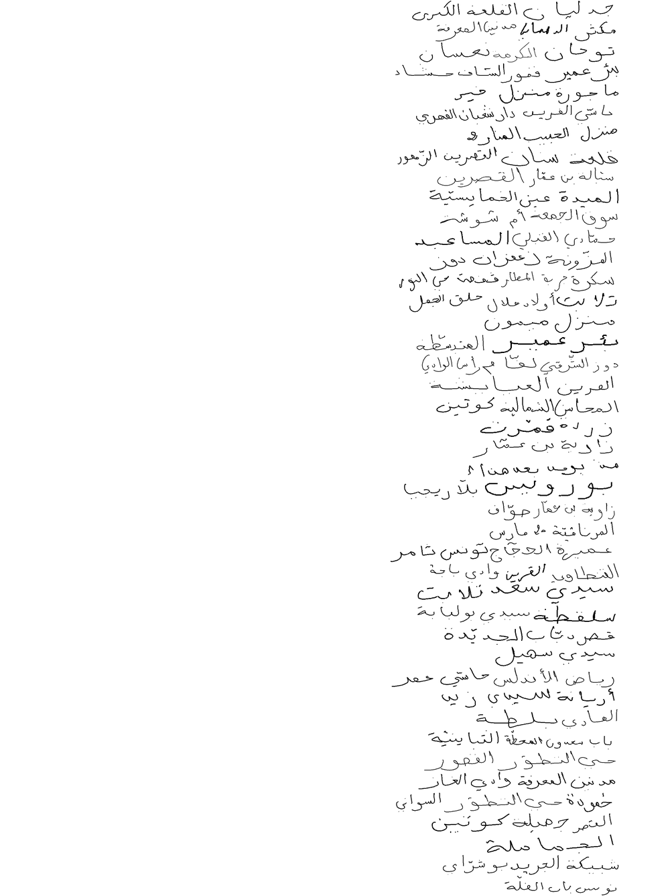 جدليان القلعة الكبرى
مكثر الدهماني مدنين المعرفة
توجان الكرمة نعسان
بئر عمير قصور الساف حشاد
ماجورة منزل خير
حاسي الفريد دار شعبان الفهري
منزل الحبيب
قلعة سنان القصرين الزهور
بن عمار القصرين
الميدة عين الخمايسية
سوق الجمعة أم شوشة
القبلي المساعيد
المزونة زعفران دوز
سكرة المطار حي النور
تلابت أولاد جلال حلق الجمل
منزل ميمون
بئر عمير
رأس الوادي
القرين العبابسة
المحاسن الشمالية كوتين
زردة قمرت
زاوية بن عمار

بورويس بلاريجيا
زاوية بن عمار جوان
المرناقية مارس
عميرة الحجاج تونس ثامر
الفطاويد القرين وادي باجة
سيدي سعد تلابت
سلقطة سيدي بولبابة
قصر دباب الجديدة
سيدي سهيل
رياض الأندلس حاسي عمر
أريانة سيدي زيد
الغادي بلطة
باب سعدون المحطة التباينية
حي التطور القصور
مدنين المعرفة وادي الغار
حفوزة حي التطور السواني
القصر جميلة كوتين
الجمايلة
شبيكة الجريد بوشراي
تونس باب القلة